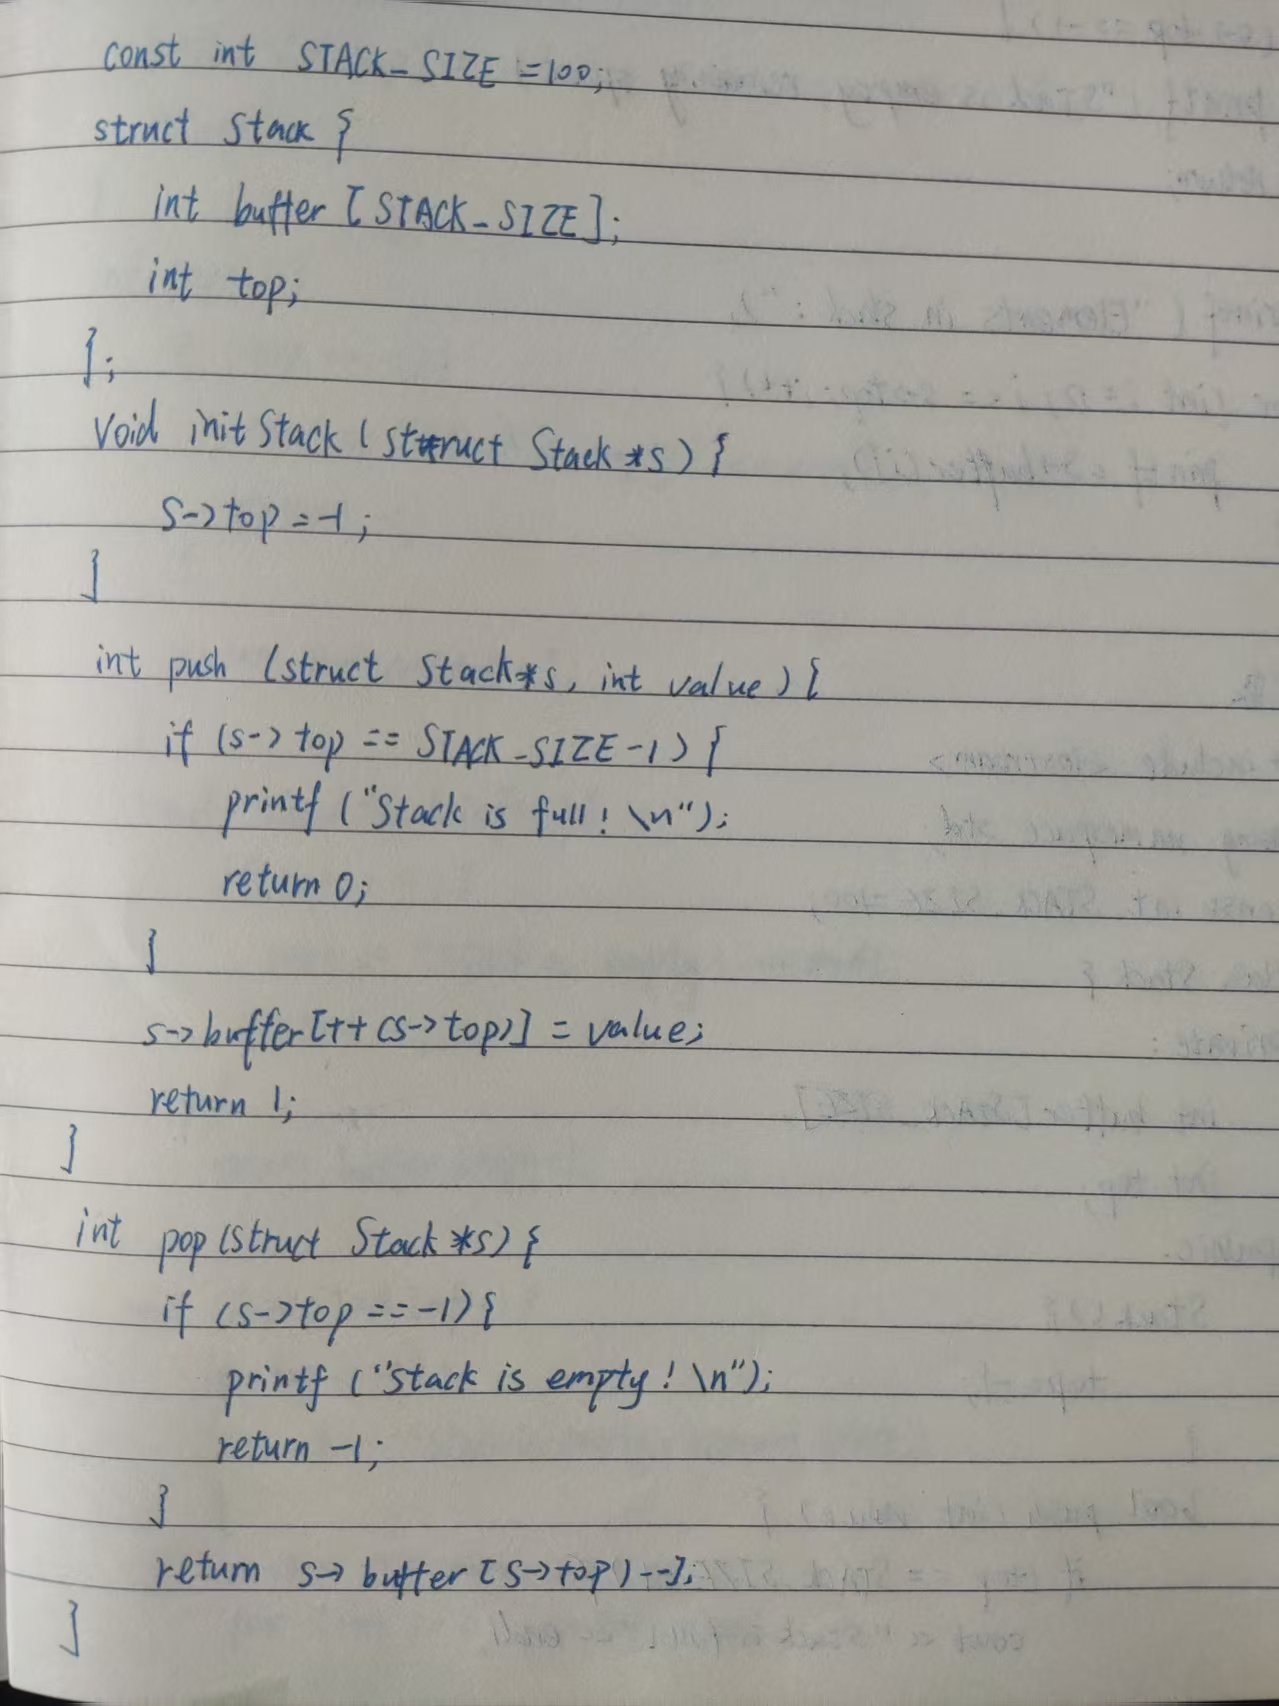 const int STACK_SIZE =100;
struct Stack {
int buffer [STACK_SIZE];
int top;
};
void initStack (struct Stack *s) {
s->top = -1;
}
int push (struct Stack*s, int value) {
if (s-> top == STACK_SIZE-1) {
printf ("Stack is full! \n");
return 0;
}
s->buffer[++(s->top)] = value;
return 1;
}
int pop (struct Stack *s) {
if (s->top == -1) {
printf ("Stack is empty! \n");
return -1;
}
return s-> buffer [s->top)--];
}